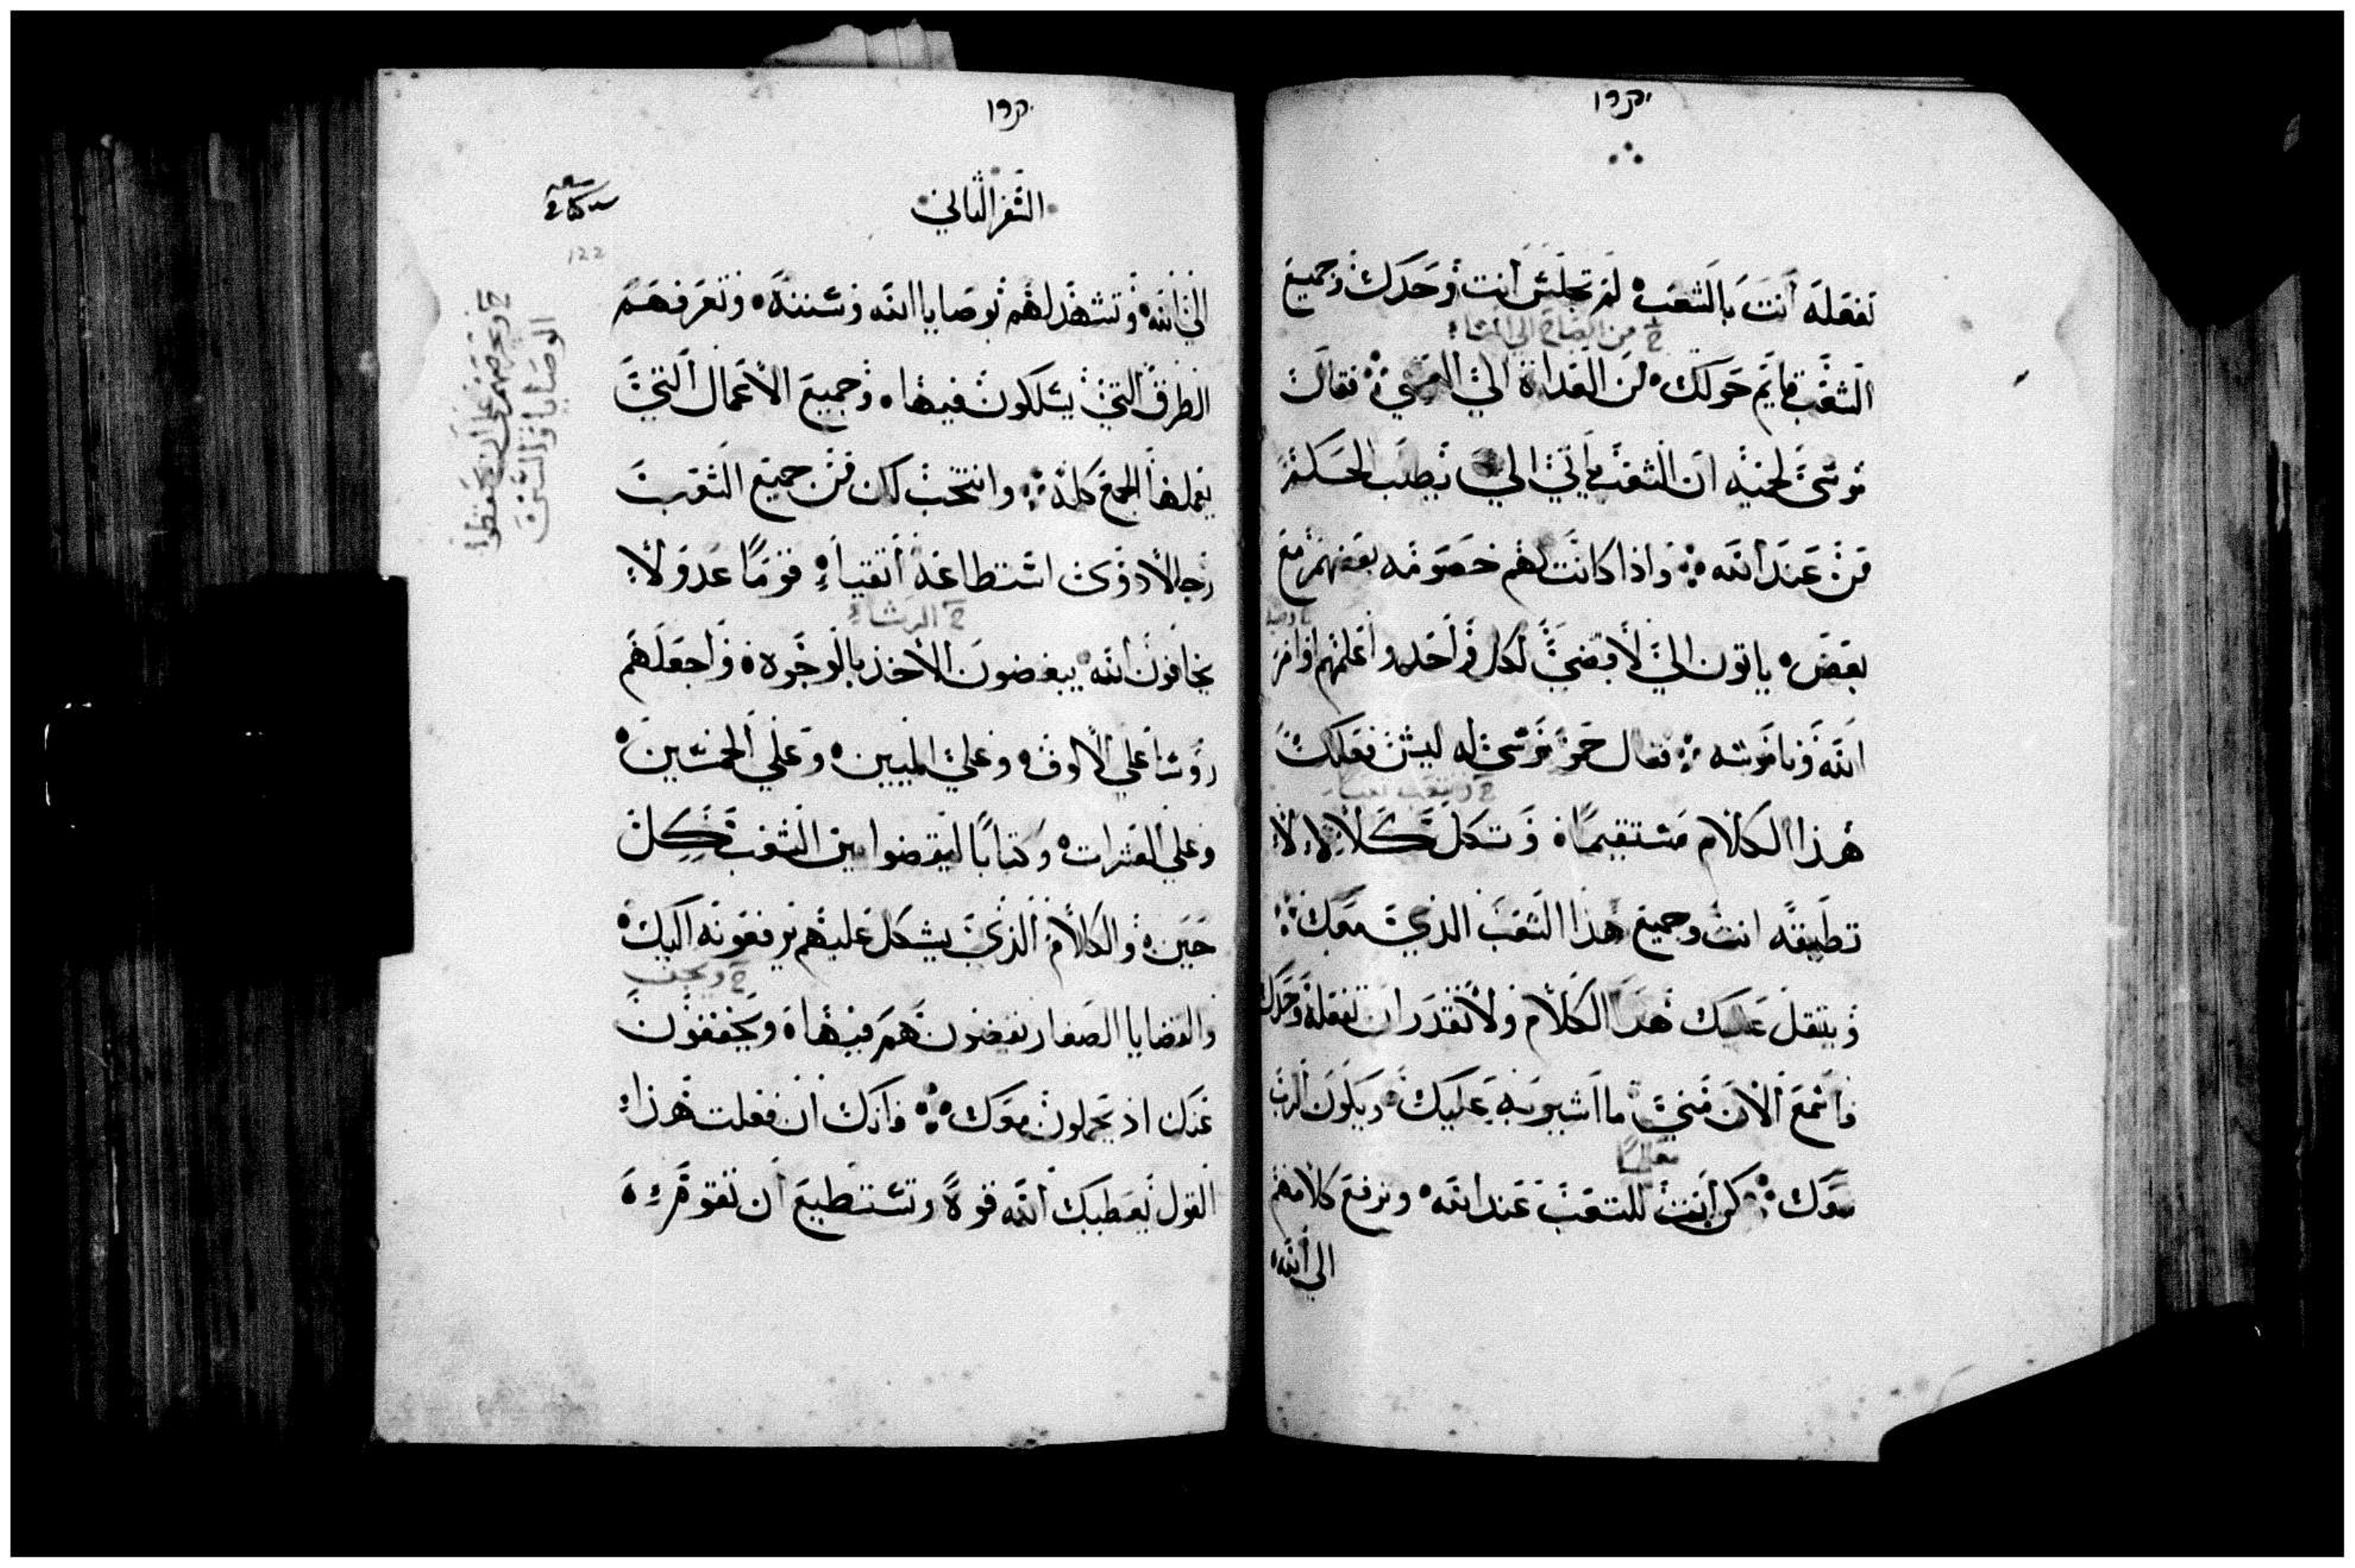 تفعله أنت بالشعب لم تجلس أنت وحدك وجميع
ح من الصباح الى المساء
الشعب قايم حولك من الغداة الي العشي فقال
موسى لحميه ان الشعب يأتي الي يطلب الحكم
من عند الله واذا كانت لهم خصومه بعضهم مع
بعض ياتون الي لأقضي لكل واحد واعلمهم اوامر
الله وناموسه فقال حمو موسى له ليس فعلك
هذا الكلام مستقيما وتكل كلالا لا
تطيقه انت وجميع هذا الشعب الذي معك
ويثقل عليك هذا الكلام ولا تقدر ان تفعله وحدك
فأسمع الان مني ما اشير به عليك ويكون الرب
معك كن أنت للشعب عند الله وترفع كلامهم
الي الله
السفر الثاني
122
الي الله وتشهد لهم بوصايا الله وسننه وتعرفهم
الطرق التي يسلكون فيها وجميع الاعمال التي
يعملها الجمع كله وانتخب لك من جميع الشعب
رجالا ذوي استطاعة أتقياء قوما عدولا
ح الرشاء
يخافون الله يبغضون الأخذ بالوجوه واجعلهم
روسا علي الالوف وعلي الميين وعلي الخمسين
وعلي العشرات وكتابا ليقضوا بين الشعب في كل
حين والكلام الذي يشكل عليهم يرفعونه اليك
والقضايا الصغار يقضون هم فيها ويخففون
عنك اذ يحملون معك فانك ان فعلت هذا
القول يعطيك الله قوة وتستطيع أن تقوم
الوصايا والسنن